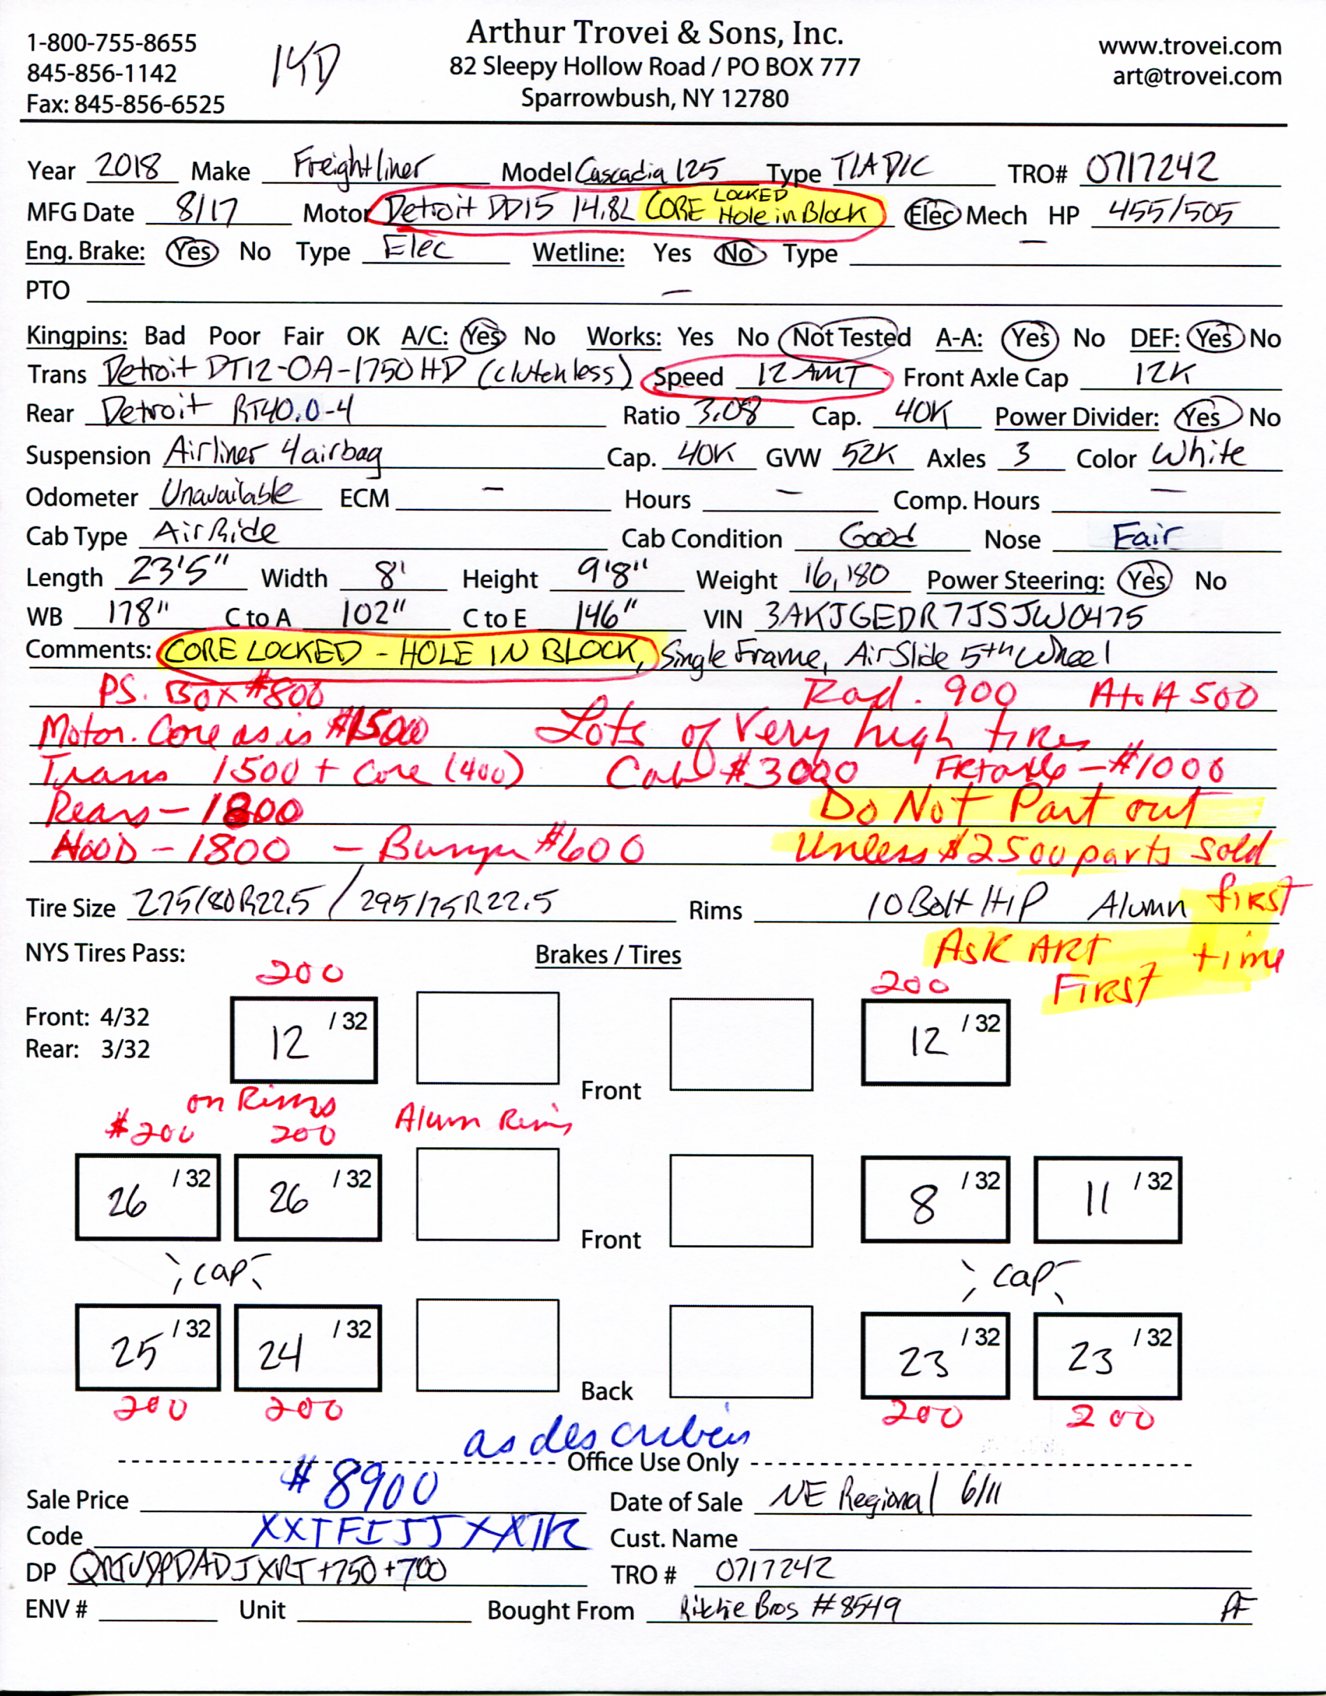 Arthur Trovei & Sons, Inc.
1-800-755-8655
845-856-1142
Fax: 845-856-6525
82 Sleepy Hollow Road / PO BOX 777
Sparrowbush, NY 12780
www.trovei.com
art@trovei.com
Year 2018 Make Freightliner Model Cascadia 125 Type T/A D/C TRO# 0717242
MFG Date 8/17 Motor Detroit DD15 14.8L CORE LOCKED Hole in Block Elec Mech HP 455/505
Eng. Brake: Yes No Type Elec Wetline: Yes No Type —
PTO —
Kingpins: Bad Poor Fair OK A/C: Yes No Works: Yes No Not Tested A-A: Yes No DEF: Yes No
Trans Detroit DT12-OA-1750HD (clutchless) Speed 12 AMT Front Axle Cap 12K
Rear Detroit RT40.0-4 Ratio 3.08 Cap. 40K Power Divider: Yes No
Suspension Airliner 4 airbag Cap. 40K GVW 52K Axles 3 Color White
Odometer Unavailable ECM — Hours — Comp. Hours —
Cab Type Air Ride Cab Condition Good Nose Fair
Length 23'5" Width 8' Height 9'8" Weight 16,180 Power Steering: Yes No
WB 178" C to A 102" C to E 146" VIN 3AKJGEDR7JSJW0475
Comments: CORE LOCKED - HOLE IN BLOCK, Single Frame, Air Slide 5th Wheel
PS. Box $800 Rad. 900 A to A 500
Motor. Core as is $1500 Lots of very high tires
Trans 1500 + core (400) Cab $3000 - $1000
Rears - 1800 Do Not Part out
HOOD - 1800 - Bumper $600 Unless $2500 parts sold
Tire Size 275/80R22.5 / 295/75R22.5 Rims 10 Bolt HiP Alumn first
NYS Tires Pass: Brakes / Tires Ask ART time
200 200 First
Front: 4/32 12 /32 12 /32
Rear: 3/32
Front
on Rims Alum Rims
$200 200
26 /32 26 /32 8 /32 11 /32
Front
cap cap
25 /32 24 /32 23 /32 23 /32
Back
200 200 200 200
as des cribed
Office Use Only
Sale Price $8900 Date of Sale NE Regional 6/11
Code Cust. Name
DP +750 +700 TRO # 0717242
ENV # Unit Bought From Ritchie Bros #8549